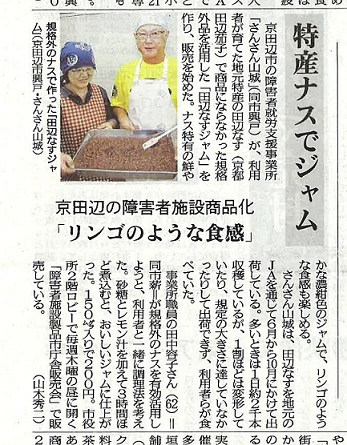 特産ナスでジャム
京田辺の障害者施設商品化
「リンゴのような食感」
規格外のナスで作った「田辺なすジャ
ム」(京田辺市興戸・さんさん山城)
京田辺市の障害者就労支援事業所
「さんさん山城」(同市興戸)が、利用
者が育てた地元特産の田辺なす(京都
田辺茄子)で商品にならなかった規格
外品を活用した「田辺なすジャム」を
作り、販売を始めた。ナス特有の鮮や
かな濃紺色のジャムで、リンゴのよう
な食感も楽しめる。
さんさん山城は、田辺なすを地元の
JAを通じて6月から10月にかけて出
荷している。多いときは1日約2千本
収穫しているが、1割ほどは変形して
いたり、規定の大きさに達していなか
ったりして出荷できず、利用者らが食
べていた。
事業所職員の田中容子さん(62)=
同市薪=が規格外のナスを有効活用し
ようと、利用者と一緒に調理法を考え
た。砂糖とレモン汁を加えて3時間ほ
ど煮込むと、おいしいジャムに仕上が
った。150㌘入りで200円。市役
所2階ロビーで毎週木曜の昼に開く
「障害者施設製品市庁舎販売会」で販
売している。 (山木秀二)